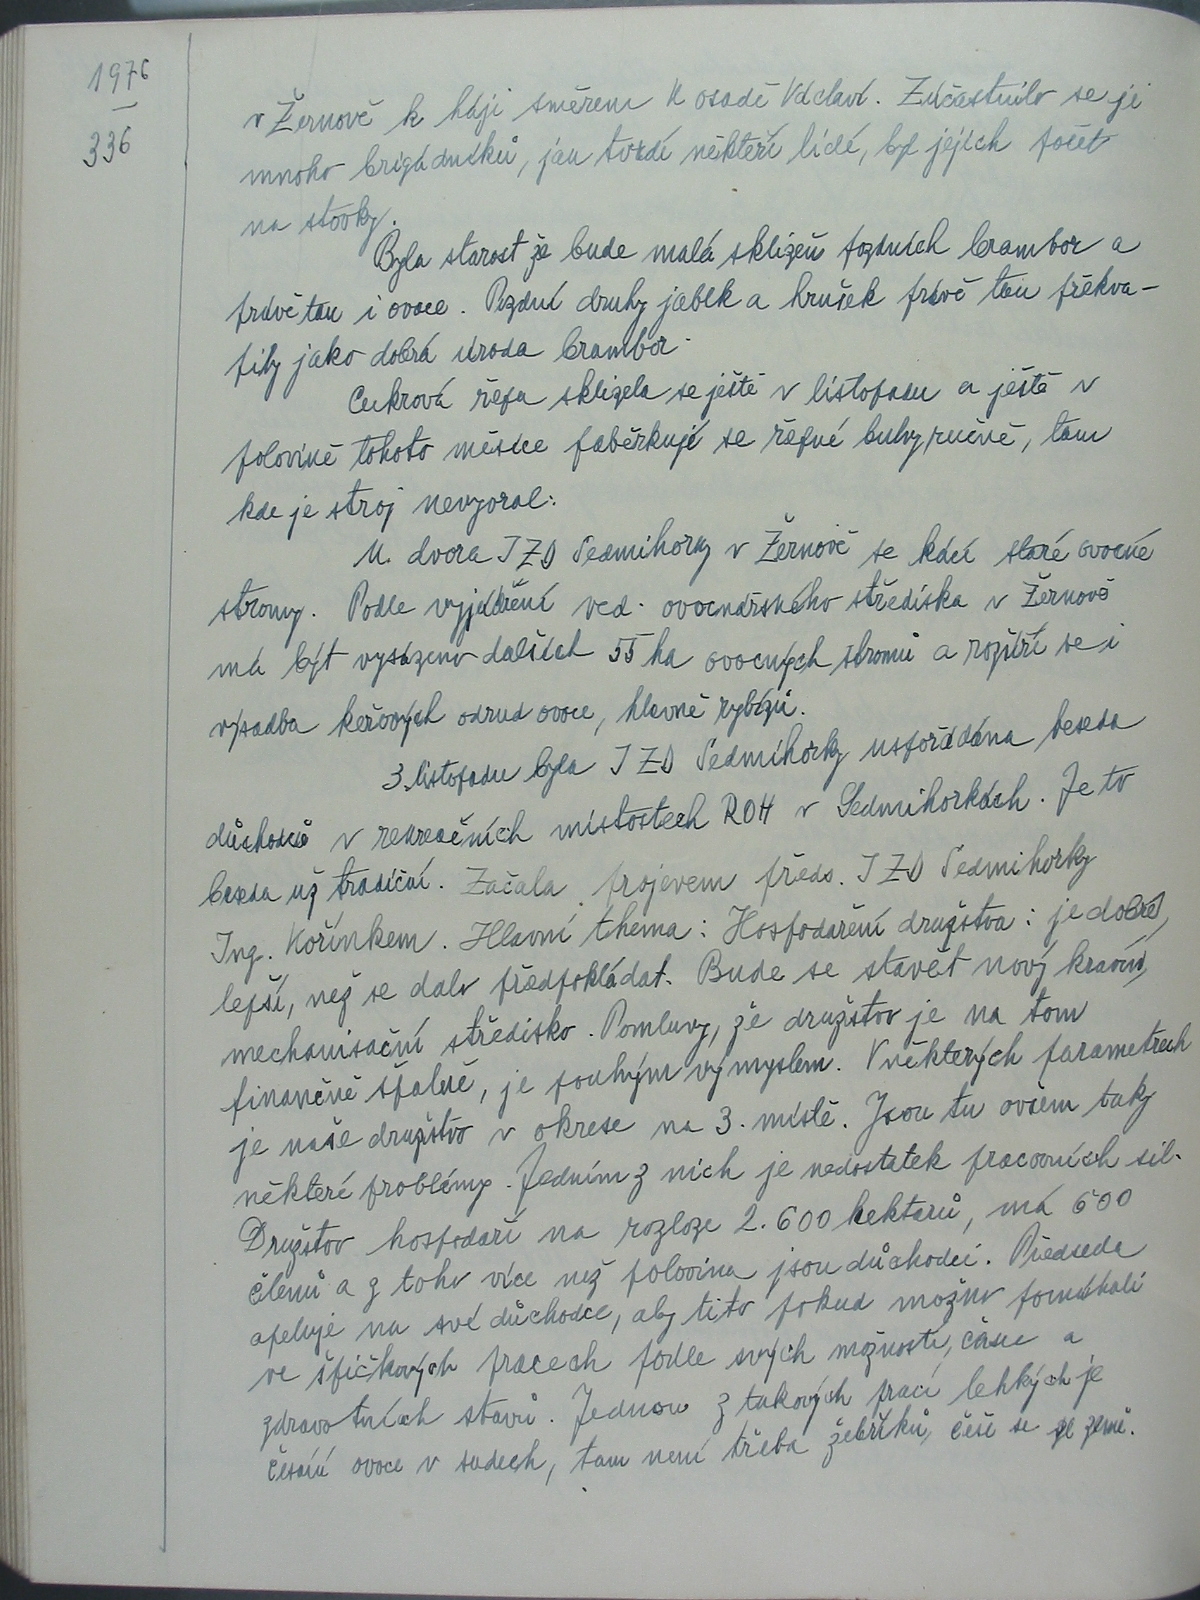 1976
336
v Žernově k háji směrem k osadě Václaví. Zúčastnilo se jí
mnoho brigádníků, jak tvrdí někteří lidé, byl jejich počet
na stovky.
Byla starost že bude malá sklizeň pozdních brambor a
právě tak i ovoce. Pozdní druhy jablek a hrušek právě tak překva-
pily jako dobrá úroda brambor.
Cukrová řepa sklizela se ještě v listopadu a ještě v
polovině tohoto měsíce paběrkují se řepné bulvy ručně, tam
kde je stroj nevyoral.
U dvora JZD Sedmihorky v Žernově se kácí staré ovocné
stromy. Podle vyjádření ved. ovocnářského střediska v Žernově
má být vysázeno dalších 55 ha ovocných stromů a rozšíří se i
výsadba keřových odrud ovoce, hlavně rybízů.
3. listopadu byla JZD Sedmihorky uspořádána beseda
důchodců v rekreačních místostech ROH v Sedmihorkách. Je to
beseda už tradiční. Začala projevem předs. JZD Sedmihorky
Ing. Kořínkem. Hlavní thema: Hospodaření družstva: je dobré,
lepší, než se dalo předpokládat. Bude se stavět nový kravín,
mechanisační středisko. Pomluvy, že družstvo je na tom
finančně špatně, je pouhým výmyslem. V některých parametrech
je naše družstvo v okrese na 3. místě. Jsou tu ovšem taky
některé problémy. Jedním z nich je nedostatek pracovních sil.
Družstvo hospodaří na rozloze 2.600 hektarů, má 600
členů a z toho více než polovina jsou důchodci. Předseda
apeluje na své důchodce, aby tito pokud možno pomáhali
ve špičkových pracech podle svých možností, času a
zdravotních stavů. Jednou z takových prací lehkých je
česání ovoce v sadech, tam není třeba žebříků, češe se ze země.